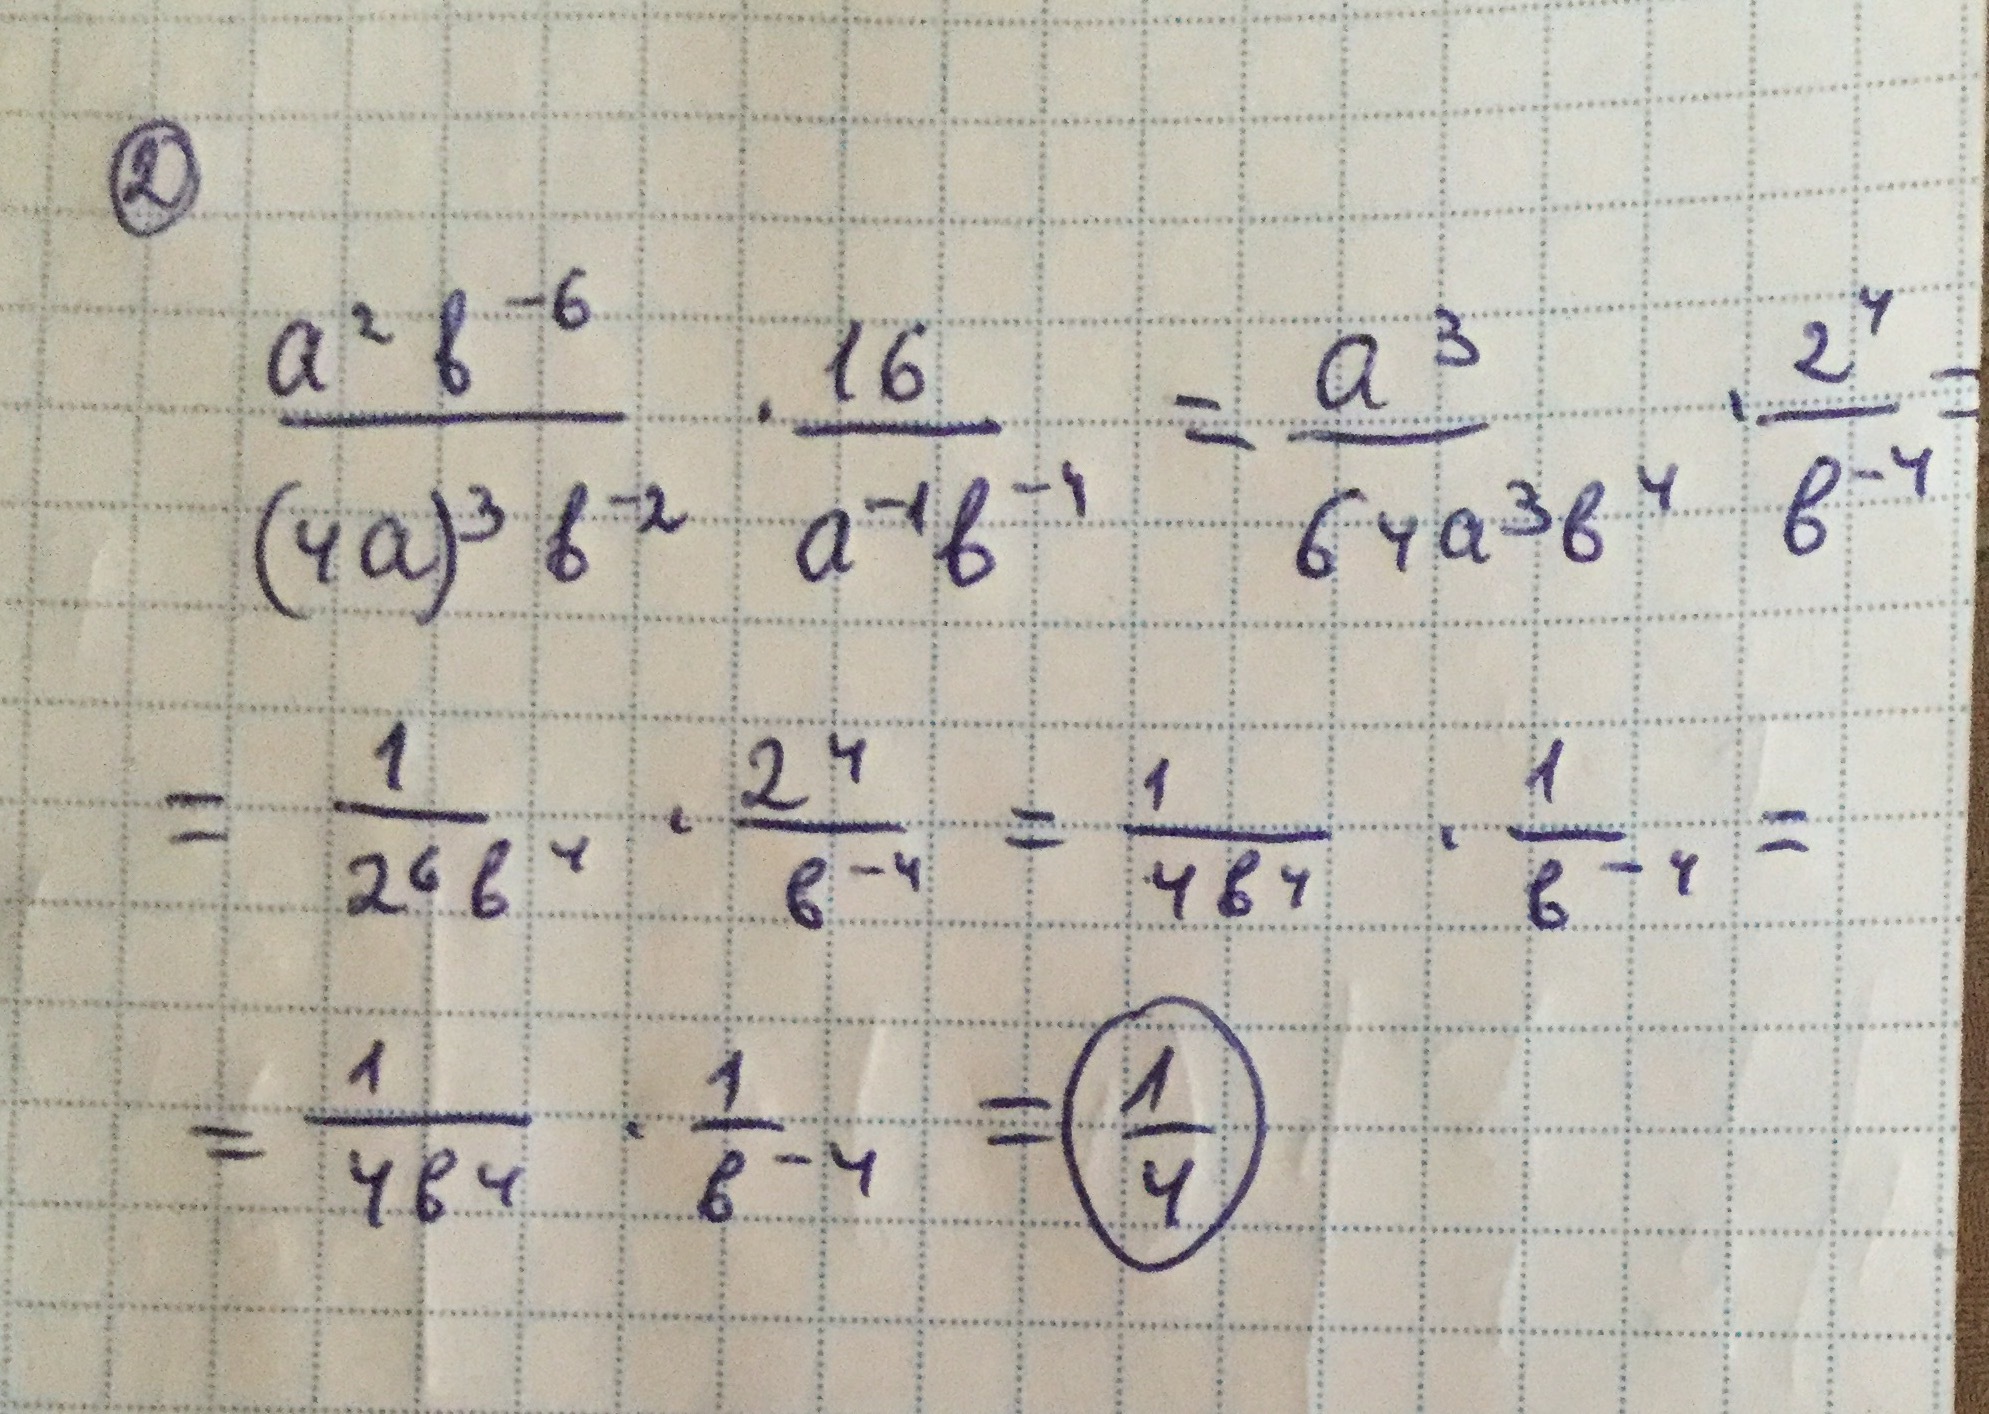 2
a² b⁻⁶ / (4a)³ b⁻² · 16 / a⁻¹b⁻⁴ = a³ / 64a³b⁴ · 2⁴ / b⁻⁴ =
= 1 / 2⁶b⁴ · 2⁴ / b⁻⁴ = 1 / 4b⁴ · 1 / b⁻⁴ =
= 1 / 4b⁴ · 1 / b⁻⁴ = 1 / 4